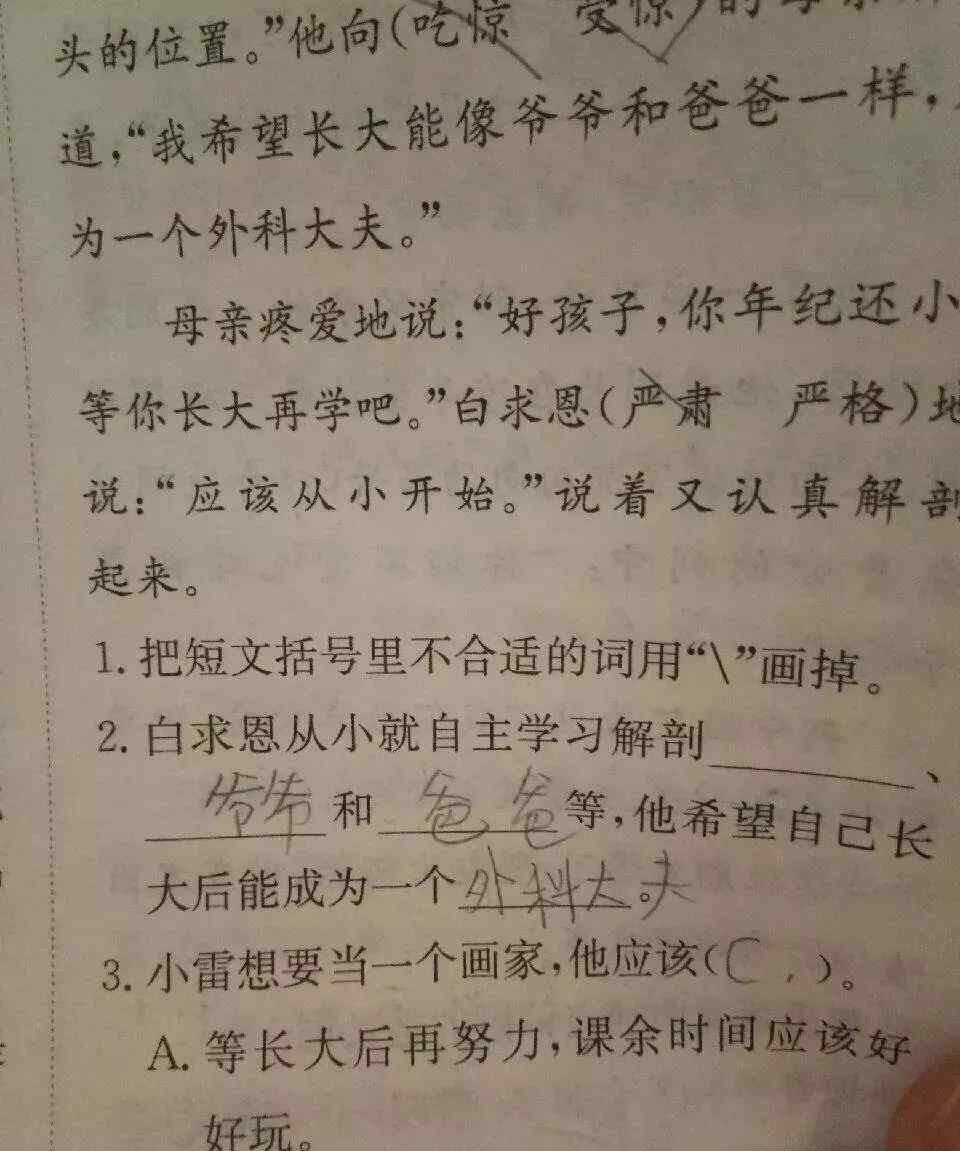 头的位置。”他向(吃惊 受惊)的母亲
道,“我希望长大能像爷爷和爸爸一样,
为一个外科大夫。”
母亲疼爱地说:“好孩子,你年纪还小
等你长大再学吧。”白求恩(严肃 严格)地
说:“应该从小开始。”说着又认真解剖
起来。
1. 把短文括号里不合适的词用“\”画掉。
2. 白求恩从小就自主学习解剖________、
爷爷和爸爸等,他希望自己长
大后能成为一个外科大夫。
3. 小雷想要当一个画家,他应该(C)。
A. 等长大后再努力,课余时间应该好
好玩。